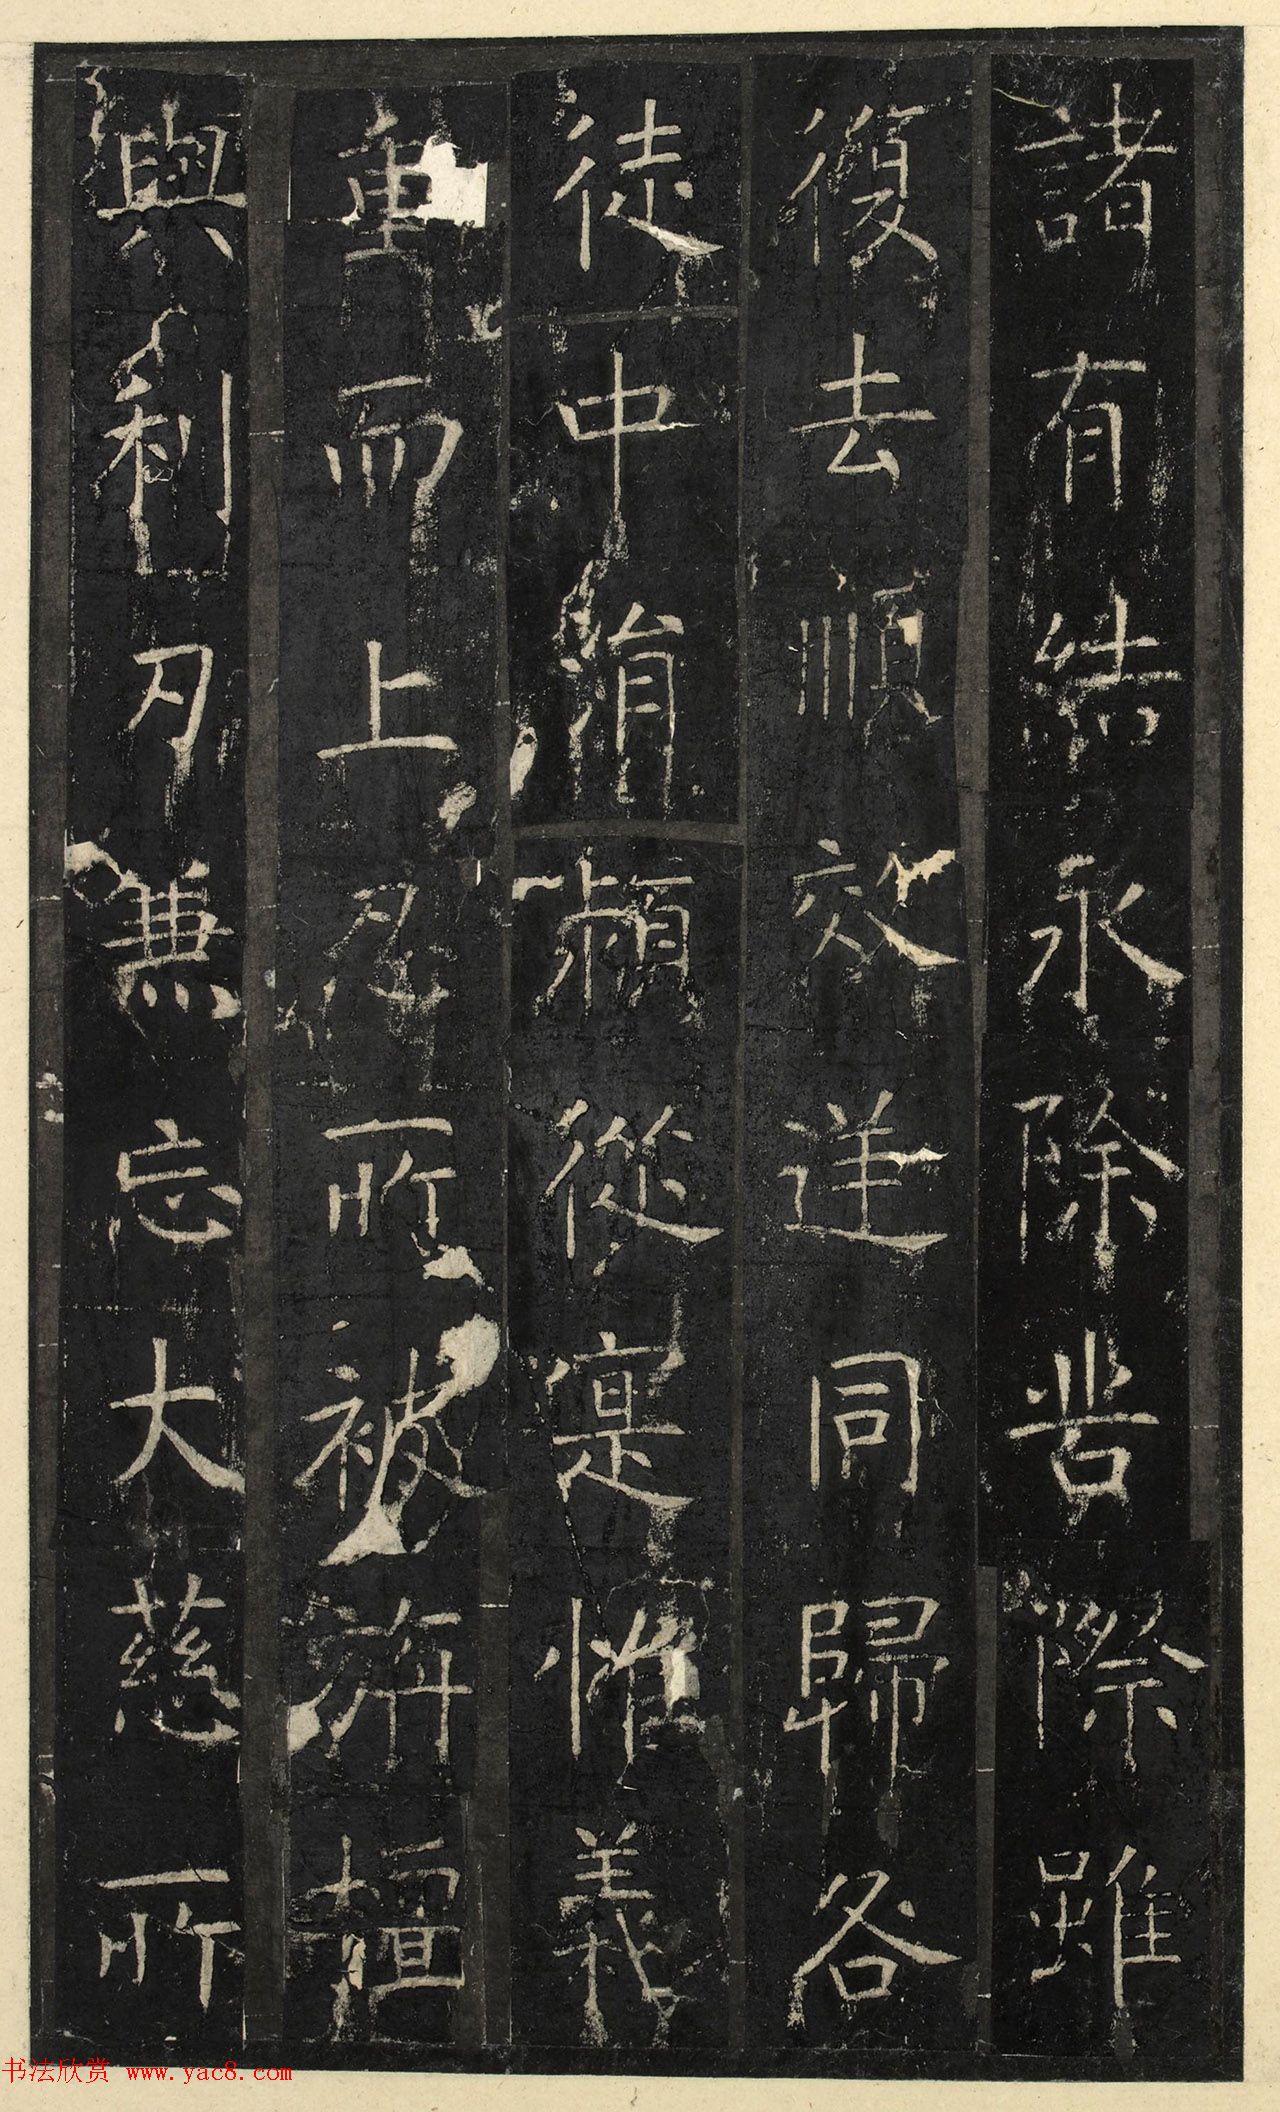 諸有結永除苦際雖
復去順效逆同歸各
徒中涓頻從寔惟義
重而上忍所被旃檀
與利刃兼忘大慈所
书法欣赏 www.yac8.com